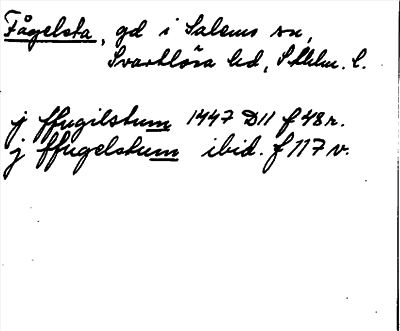 Fågelsta, gd i Salems sn,
Svartlösa hd, Sthlm. l.
j ffugilstum 1447 D11 f 48 r.
j ffugelstum ibid. f 117 v.